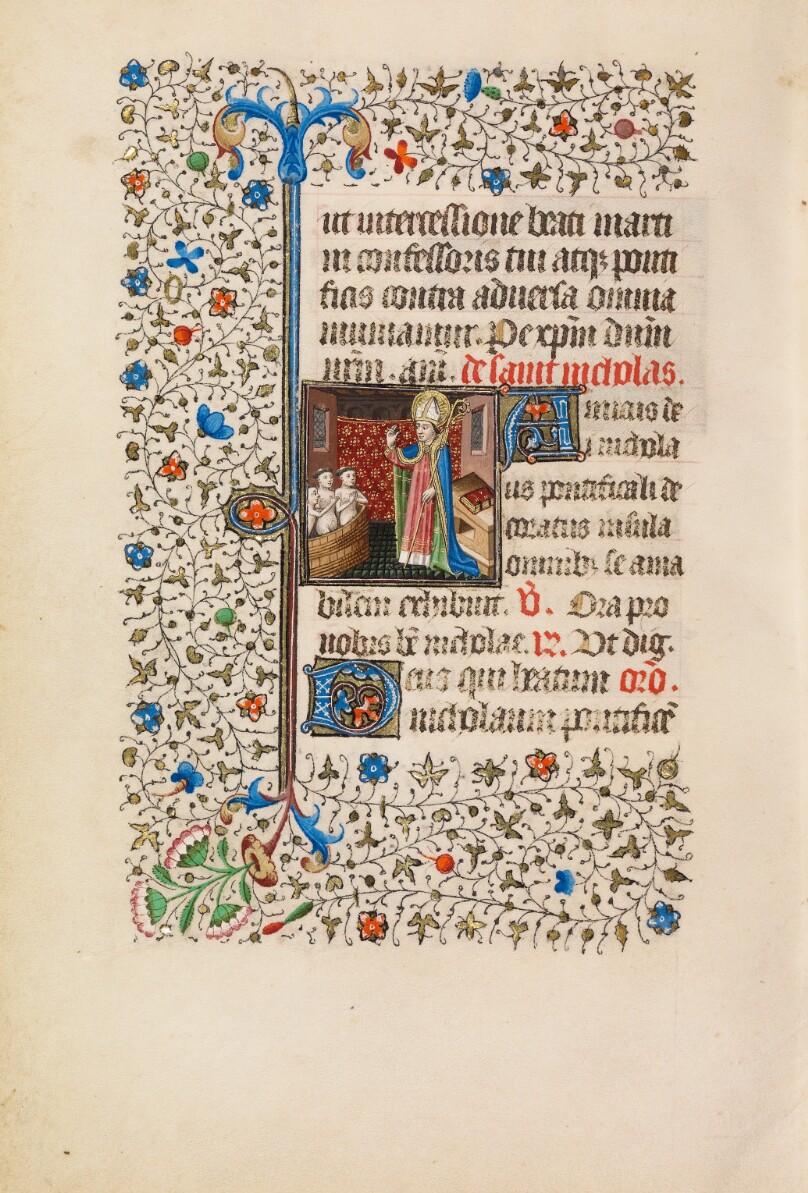 ut intercessione beati marti
ni confessoris tui atq; ponti
ficis contra adversa omnia
muniamur. Per xp̄m dn̄m
nr̄m. am̄. de saint nicholas.
Amicus de
i nichola
us pontificali de
coratus insula
omnib; se ama
bilem exhibuit. v̄. Ora pro
nobis bē nicholae. R̄. Ut dig.
Deus qui beatum or̄o.
nicholaum pontificē